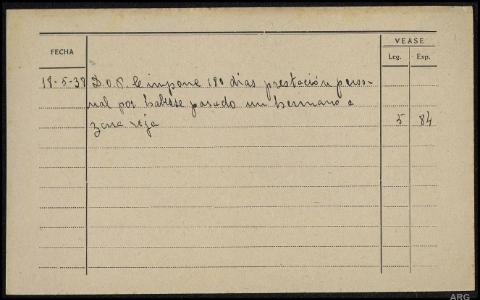 VEASE
FECHA
Leg. Exp.
18-5-38 D.O.P. le impone 180 días prestación perso-
nal por haberse pasado un hermano a
zona roja
5 84
ARG